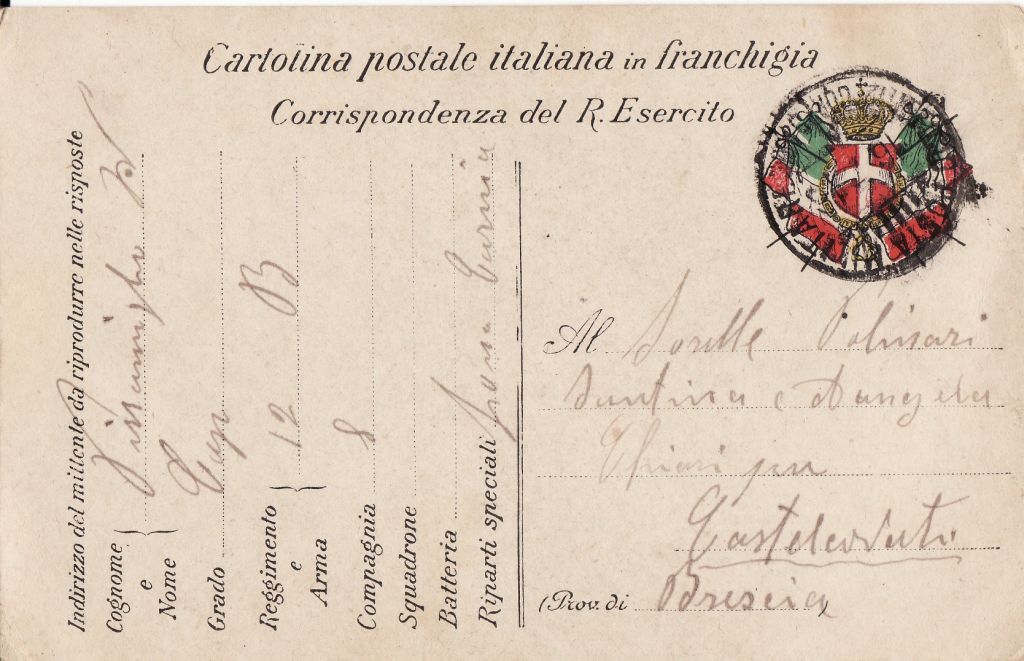 Cartolina postale italiana in franchigia
Corrispondenza del R. Esercito
POSTA MILITARE
Indirizzo del mittente da riprodurre nelle risposte
Cognome e Nome
Grado Cap
Reggimento e Arma 12 B
Compagnia 8
Squadrone
Batteria
Riparti speciali Zona Carnia
Al Sorelle Polinari
Santina e
Chiari per
Castelcovati
(Prov. di Brescia)